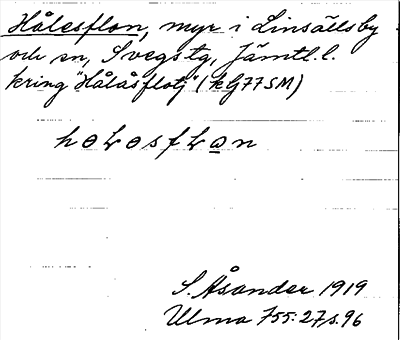 Hålesflon, myr i Linsällsby
och sn, Svegs tg, Jämtl. l.
kring "Hålåsflotj" (kG77SM)
S. Åsander 1919
Ulma 755:27 s. 96